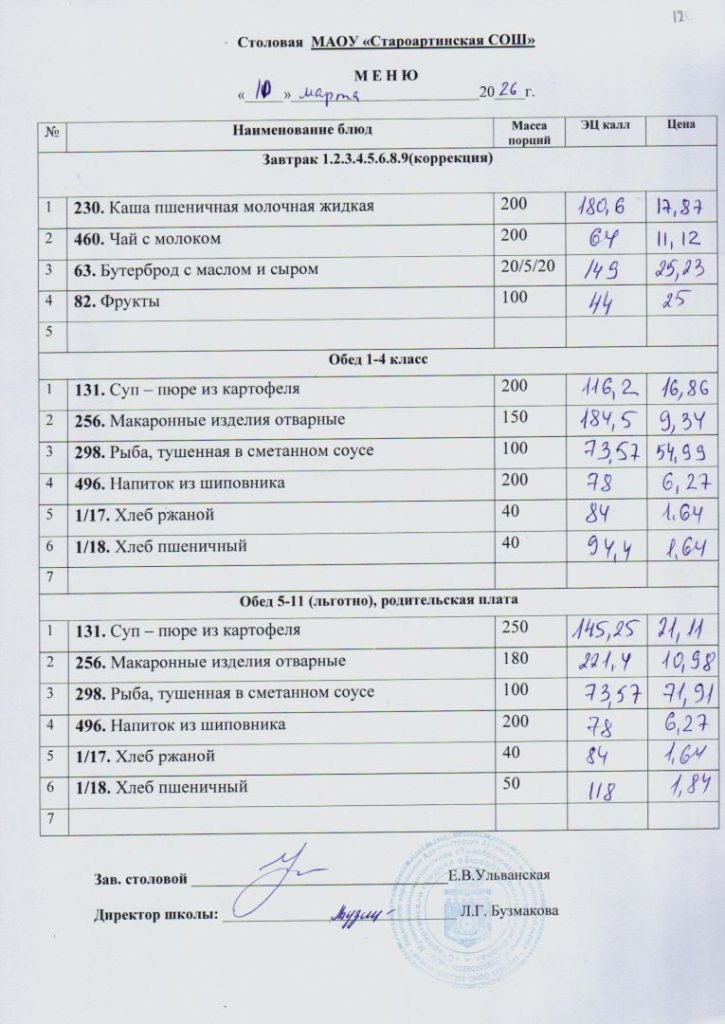 Столовая МАОУ «Староартинская СОШ»
М Е Н Ю
«10» марта 2026 г.
№ Наименование блюд Масса порций ЭЦ калл Цена
Завтрак 1.2.3.4.5.6.8.9(коррекция)
1 230. Каша пшеничная молочная жидкая 200 180,6 17,87
2 460. Чай с молоком 200 64 11,12
3 63. Бутерброд с маслом и сыром 20/5/20 149 25,23
4 82. Фрукты 100 44 25
5
Обед 1-4 класс
1 131. Суп – пюре из картофеля 200 116,2 16,86
2 256. Макаронные изделия отварные 150 184,5 9,34
3 298. Рыба, тушенная в сметанном соусе 100 73,57 54,99
4 496. Напиток из шиповника 200 78 6,27
5 1/17. Хлеб ржаной 40 84 1.64
6 1/18. Хлеб пшеничный 40 94,4 1,64
7
Обед 5-11 (льготно), родительская плата
1 131. Суп – пюре из картофеля 250 145,25 21,11
2 256. Макаронные изделия отварные 180 221,4 10,98
3 298. Рыба, тушенная в сметанном соусе 100 73,57 71,91
4 496. Напиток из шиповника 200 78 6,27
5 1/17. Хлеб ржаной 40 84 1,64
6 1/18. Хлеб пшеничный 50 118 1,84
7
Зав. столовой Е.В.Ульванская
Директор школы: Л.Г. Бузмакова